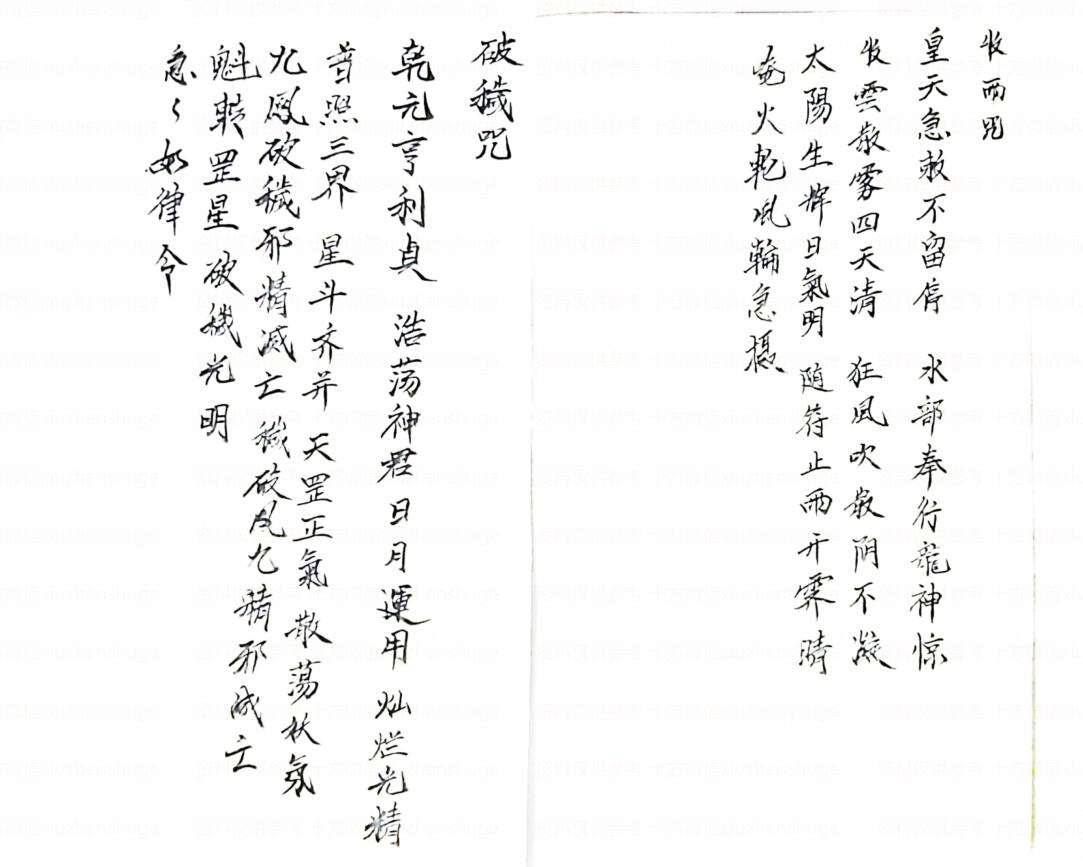 收雨咒
皇天急敕不留停 水部奉行龍神惊
收雲散雾四天清 狂風吹散阴不凝
太陽生辉日氣明 随符止雨开霁晴
火乾风輪急摄
破穢咒
乾元亨利貞 浩荡神君日月運用 灿烂光精
普照三界 星斗齐弁 天罡正氣 散荡妖氛
九凤破穢邪精滅亡 穢破凤九精邪滅亡
魁轉罡星破穢光明
急々如律令
资料仅供参考 十方微信xiuzhenshuge